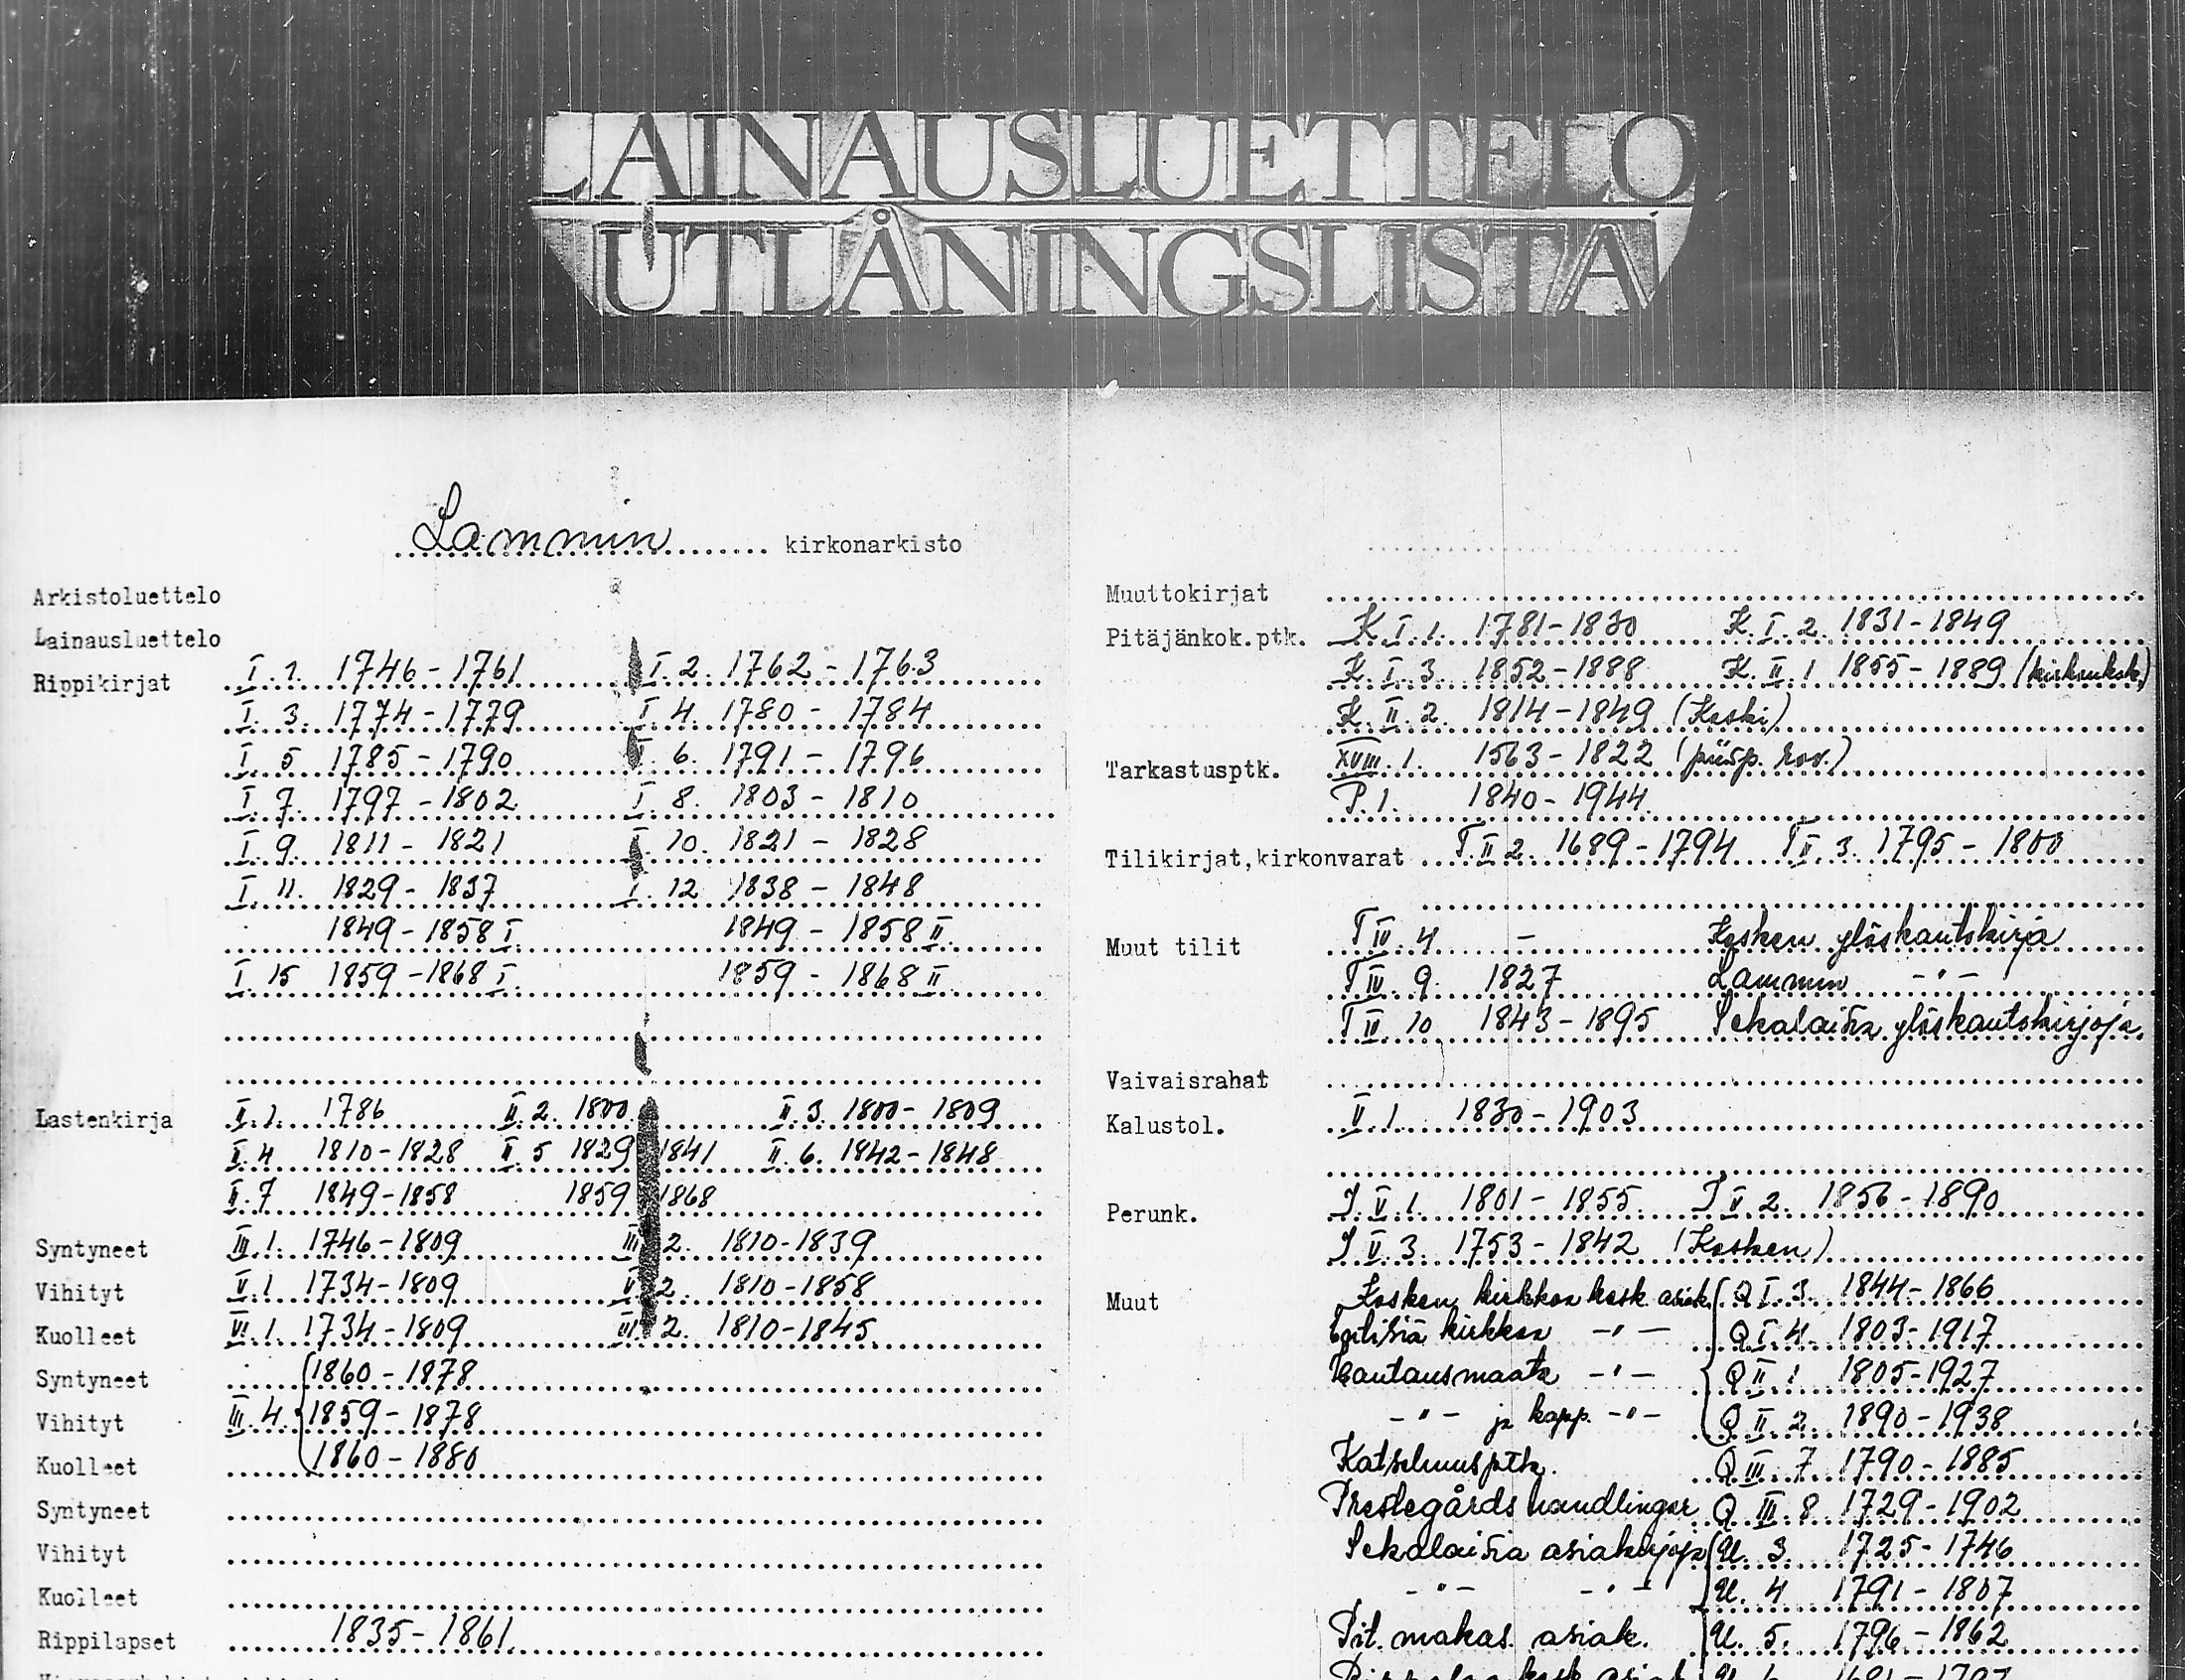 LAINAUSLUETTELO
UTLÅNINGSLISTA
Lammin kirkonarkisto
Arkistoluettelo
Lainausluettelo
Rippikirjat I. 1. 1746-1761 I. 2. 1762-1763
I. 3. 1774-1779 I. 4. 1780-1784
I. 5 1785-1790 I. 6. 1791-1796
I. 7. 1797-1802 I. 8. 1803-1810
I. 9. 1811-1821 I. 10. 1821-1828
I. 11. 1829-1837 I. 12 1838-1848
1849-1858 I. 1849-1858 II
I. 15 1859-1868 I. 1859-1868 II
Lastenkirja II. 1. 1786 II. 2. 1800 II. 3. 1800-1809
II. 4 1810-1828 II. 5 1829 1841 II. 6. 1842-1848
II. 7 1849-1858 1859 1868
Syntyneet III. 1. 1746-1809 III 2. 1810-1839
Vihityt V. 1 1734-1809 V 2. 1810-1858
Kuolleet VI. 1. 1734-1809 2. 1810-1845
Syntyneet 1860-1878
Vihityt III. 4. 1859-1878
Kuolleet 1860-1880
Syntyneet
Vihityt
Kuolleet
Rippilapset 1835-1861
Muuttokirjat
Pitäjänkok.ptk. K. I. 1. 1781-1830 K. I. 2. 1831-1849
K. I. 3. 1852-1888 K. II. 1 1855-1889
K. II. 2. 1814-1849 (Koski)
Tarkastusptk. XVIII. 1. 1563-1822 (piisp. rov.)
P. 1. 1840-1944
Tilikirjat,kirkonvarat T. II 2. 1689-1794 T II. 3. 1795-1800
Muut tilit T IV. 4 - Kosken ylöskantokirja
T IV. 9. 1827 Lammin -"-
T IV. 10 1843-1895 Sekalaisia ylöskantokirjoja.
Vaivaisrahat
Kalustol. II. 1. 1830-1903
Perunk. J. V. 1. 1801-1855 J V 2. 1856-1890
J V. 3. 1753-1842 (Kosken)
Muut Kosken kirkkoa kosk. asiak. Q I. 3. 1844-1866
kirkkoa -"- Q I. 4. 1803-1917
hautausmaata -"- Q II. 1 1805-1927
-"- ja kapp. -"- Q II. 2. 1890-1938
Katselmusptk. Q III. 7 1790-1885
Prestegårds handlingar Q III. 8 1729-1902
Sekalaisia asiakirjoja U. 3. 1725-1746
-"- -"- U. 4 1791-1807
Pit. makas. asiak. U. 5. 1796-1862